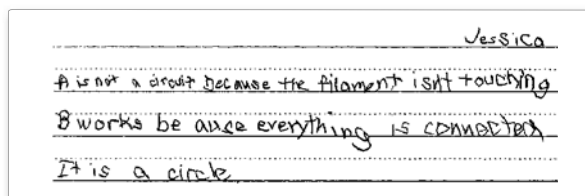 Jessica
A is not a circuit because the filament isnt touching
B works be ause everything is connected
It is a circle